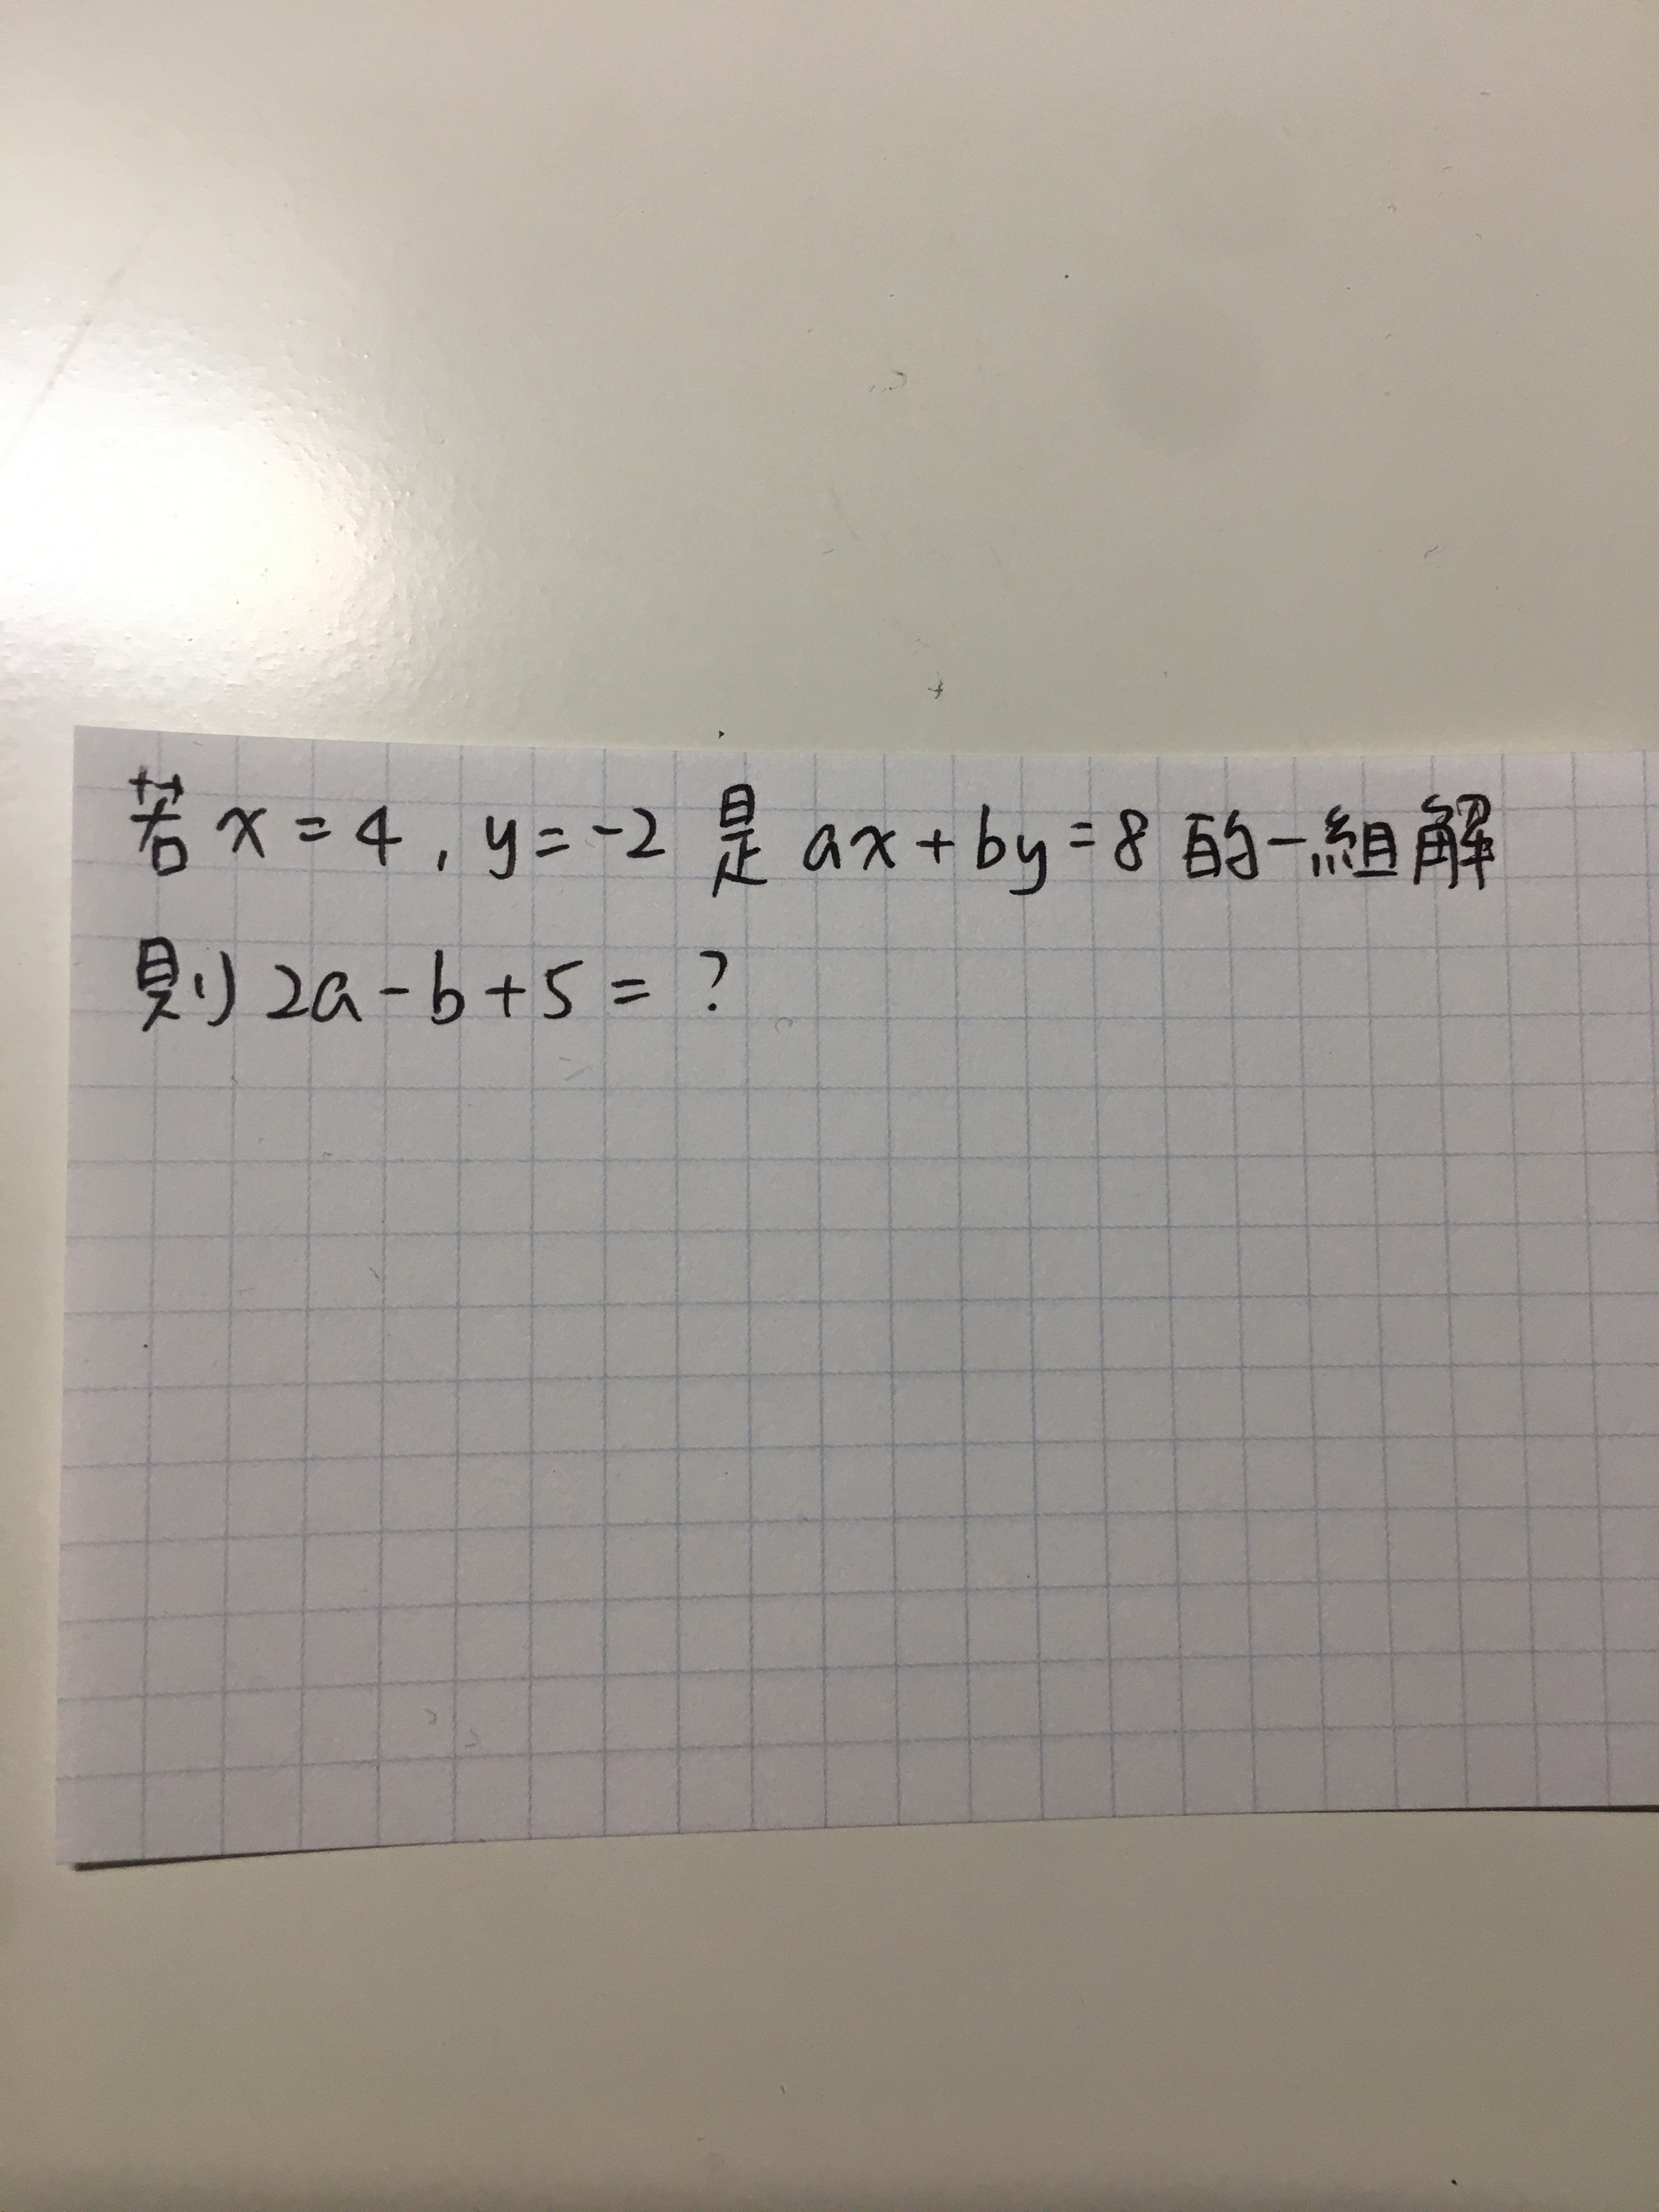 若 x = 4 , y = -2 是 ax + by = 8 的一組解
則 2a - b + 5 = ?